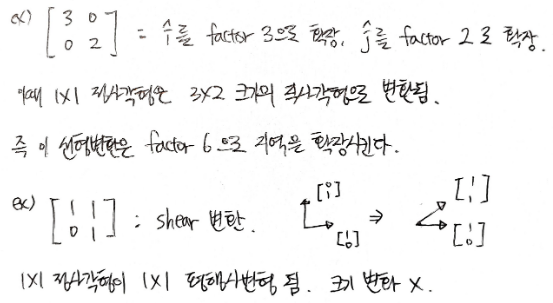 ex) [3 0
0 2] = î를 factor 3으로 확장, ĵ를 factor 2로 확장.
이때 1x1 정사각형은 3x2 크기의 직사각형으로 변환됨.
즉 이 선형변환은 factor 6으로 지역을 확장시킨다.
ex) [1 1
0 1] : shear 변환. [0
1] [1
0] ⇒ [1
1] [1
0]
1x1 정사각형이 1x1 평행사변형 됨. 크기 변화 X.